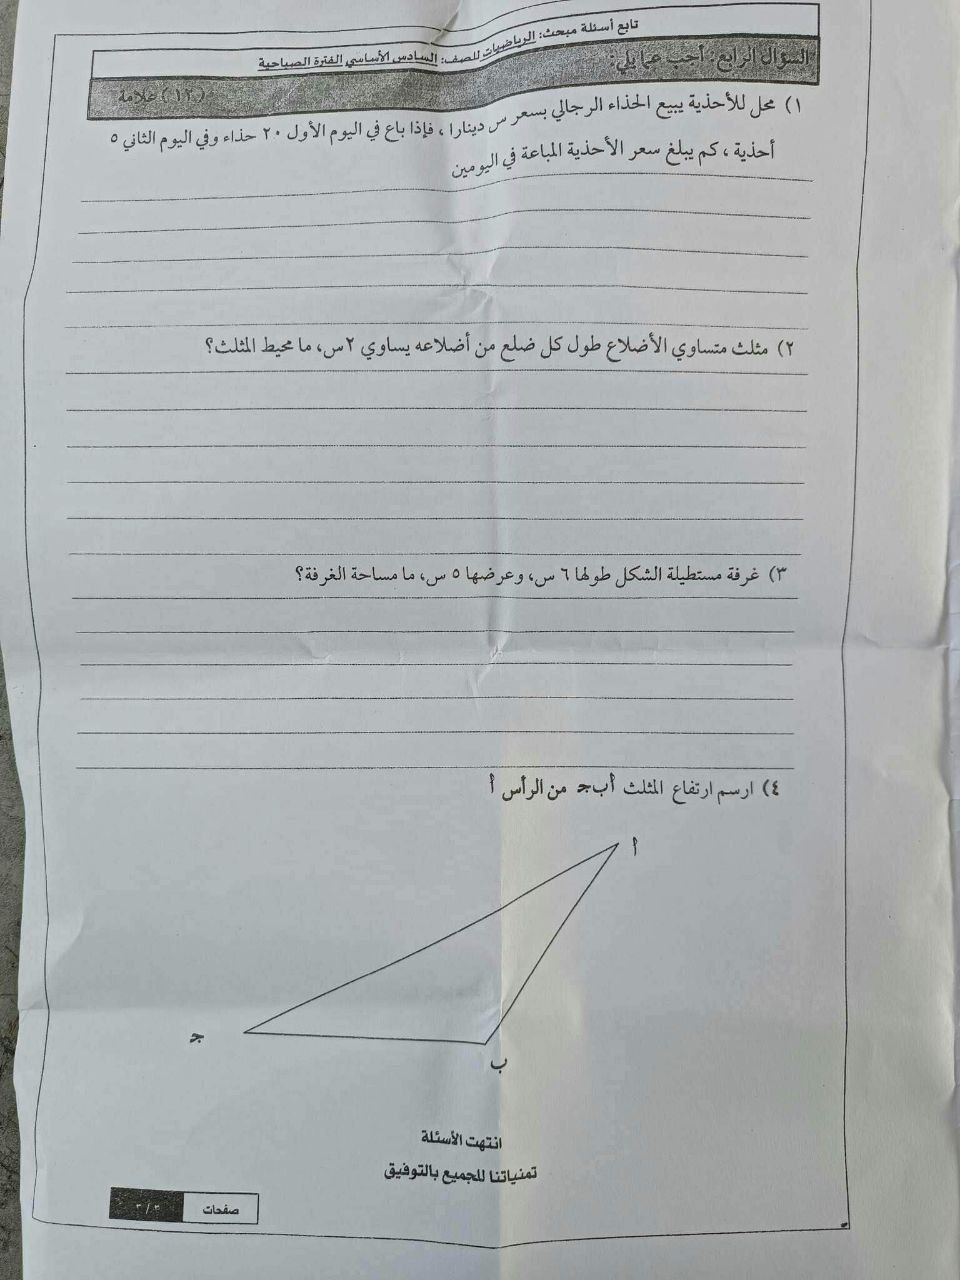 تابع أسئلة مبحث: الرياضيات للصف: السادس الأساسي الفترة الصباحية
السؤال الرابع: أجب عما يلي:
(١٢) علامة
١) محل للأحذية يبيع الحذاء الرجالي بسعر س دينارا ، فإذا باع في اليوم الأول ٢٠ حذاء وفي اليوم الثاني ٥
أحذية ، كم يبلغ سعر الأحذية المباعة في اليومين
٢) مثلث متساوي الأضلاع طول كل ضلع من أضلاعه يساوي ٢س، ما محيط المثلث؟
٣) غرفة مستطيلة الشكل طولها ٦ س، وعرضها ٥ س، ما مساحة الغرفة؟
٤) ارسم ارتفاع المثلث أب جـ من الرأس أ
أ
جـ
ب
انتهت الأسئلة
تمنياتنا للجميع بالتوفيق
صفحات ٣/٣